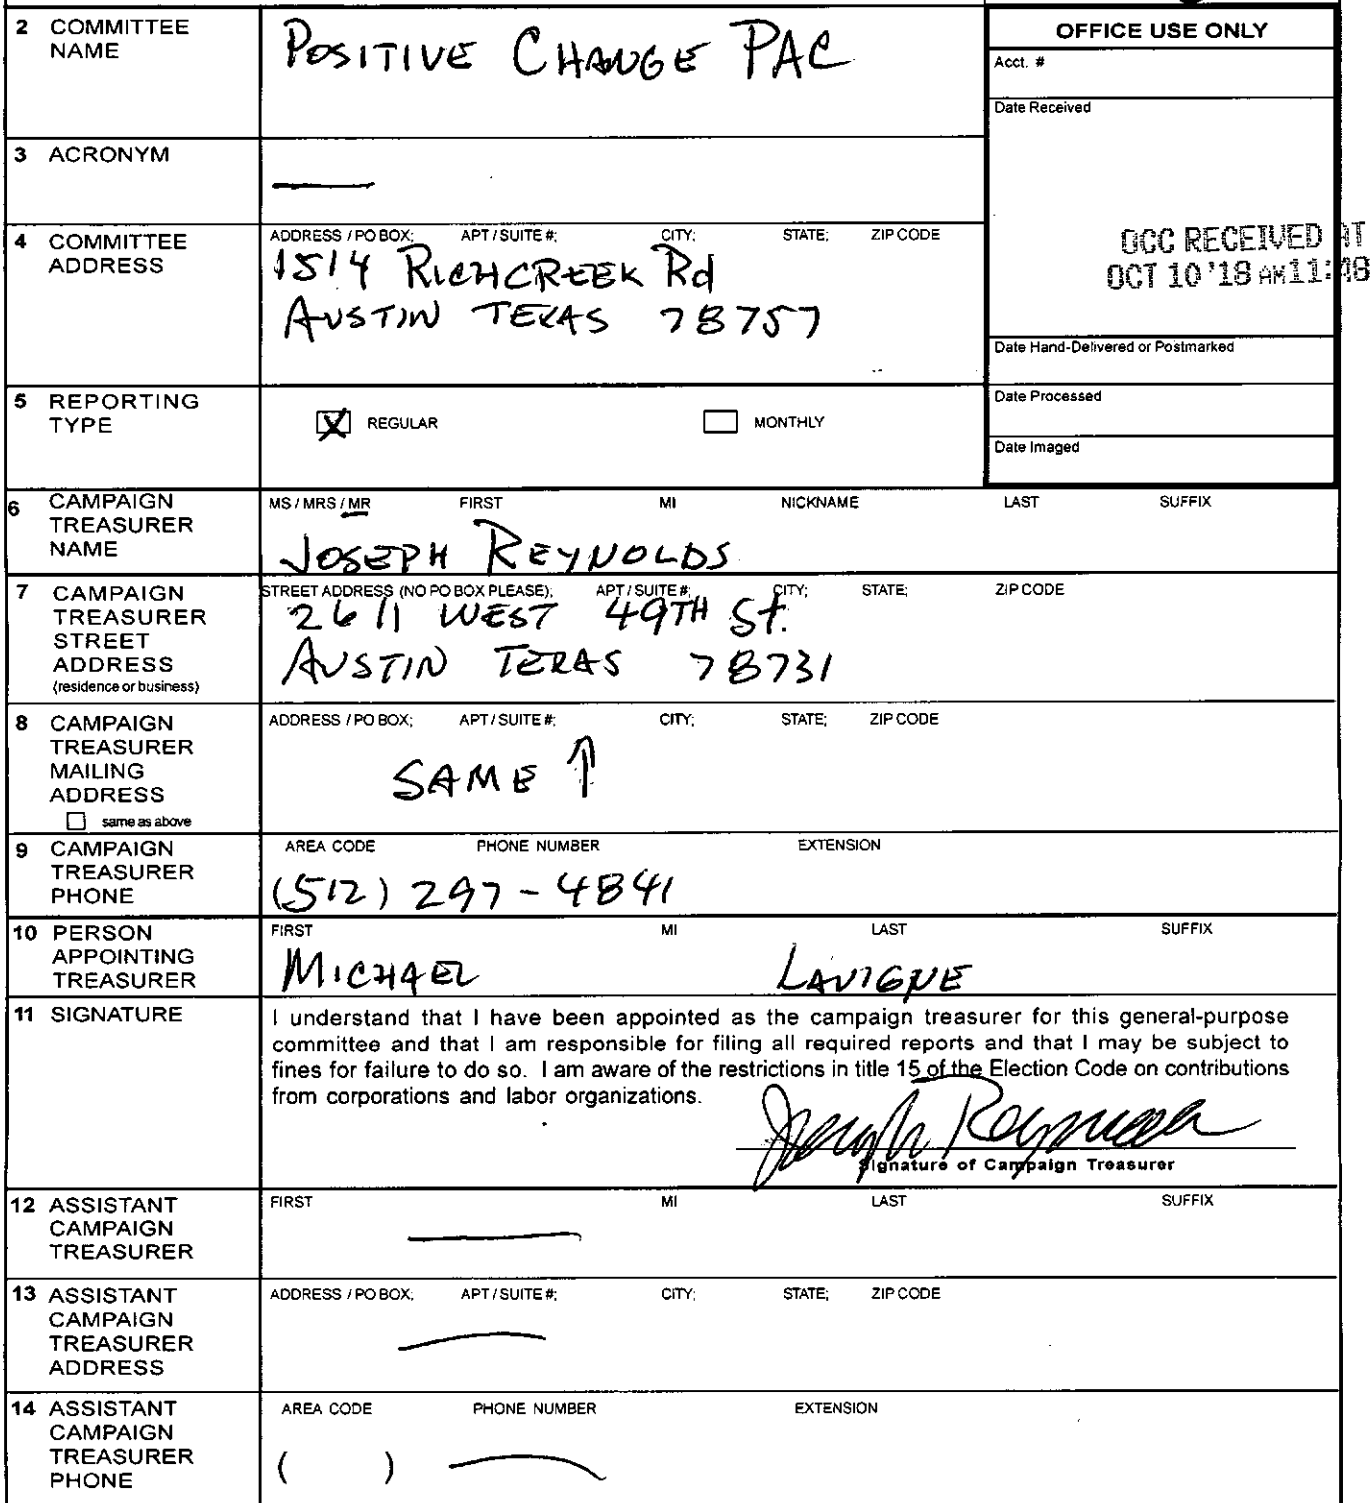 2 COMMITTEE NAME
POSITIVE CHANGE PAC
OFFICE USE ONLY
Acct. #
Date Received
OCC RECEIVED AT
OCT 10 '18 AM 11:48
Date Hand-Delivered or Postmarked
Date Processed
Date Imaged
3 ACRONYM
4 COMMITTEE ADDRESS
ADDRESS / PO BOX; APT / SUITE #; CITY; STATE; ZIP CODE
1514 RICHCREEK Rd
AUSTIN TEXAS 78757
5 REPORTING TYPE
X REGULAR MONTHLY
6 CAMPAIGN TREASURER NAME
MS / MRS / MR FIRST MI NICKNAME LAST SUFFIX
JOSEPH REYNOLDS
7 CAMPAIGN TREASURER STREET ADDRESS
(residence or business)
STREET ADDRESS (NO PO BOX PLEASE); APT / SUITE #; CITY; STATE; ZIP CODE
2611 WEST 49TH St.
AUSTIN TEXAS 78731
8 CAMPAIGN TREASURER MAILING ADDRESS
same as above
ADDRESS / PO BOX; APT / SUITE #; CITY; STATE; ZIP CODE
SAME ↑
9 CAMPAIGN TREASURER PHONE
AREA CODE PHONE NUMBER EXTENSION
(512) 297-4841
10 PERSON APPOINTING TREASURER
FIRST MI LAST SUFFIX
MICHAEL LAVIGNE
11 SIGNATURE
I understand that I have been appointed as the campaign treasurer for this general-purpose
committee and that I am responsible for filing all required reports and that I may be subject to
fines for failure to do so. I am aware of the restrictions in title 15 of the Election Code on contributions
from corporations and labor organizations.
Joseph Reynolds
Signature of Campaign Treasurer
12 ASSISTANT CAMPAIGN TREASURER
FIRST MI LAST SUFFIX
13 ASSISTANT CAMPAIGN TREASURER ADDRESS
ADDRESS / PO BOX; APT / SUITE #; CITY; STATE; ZIP CODE
14 ASSISTANT CAMPAIGN TREASURER PHONE
AREA CODE PHONE NUMBER EXTENSION
( )